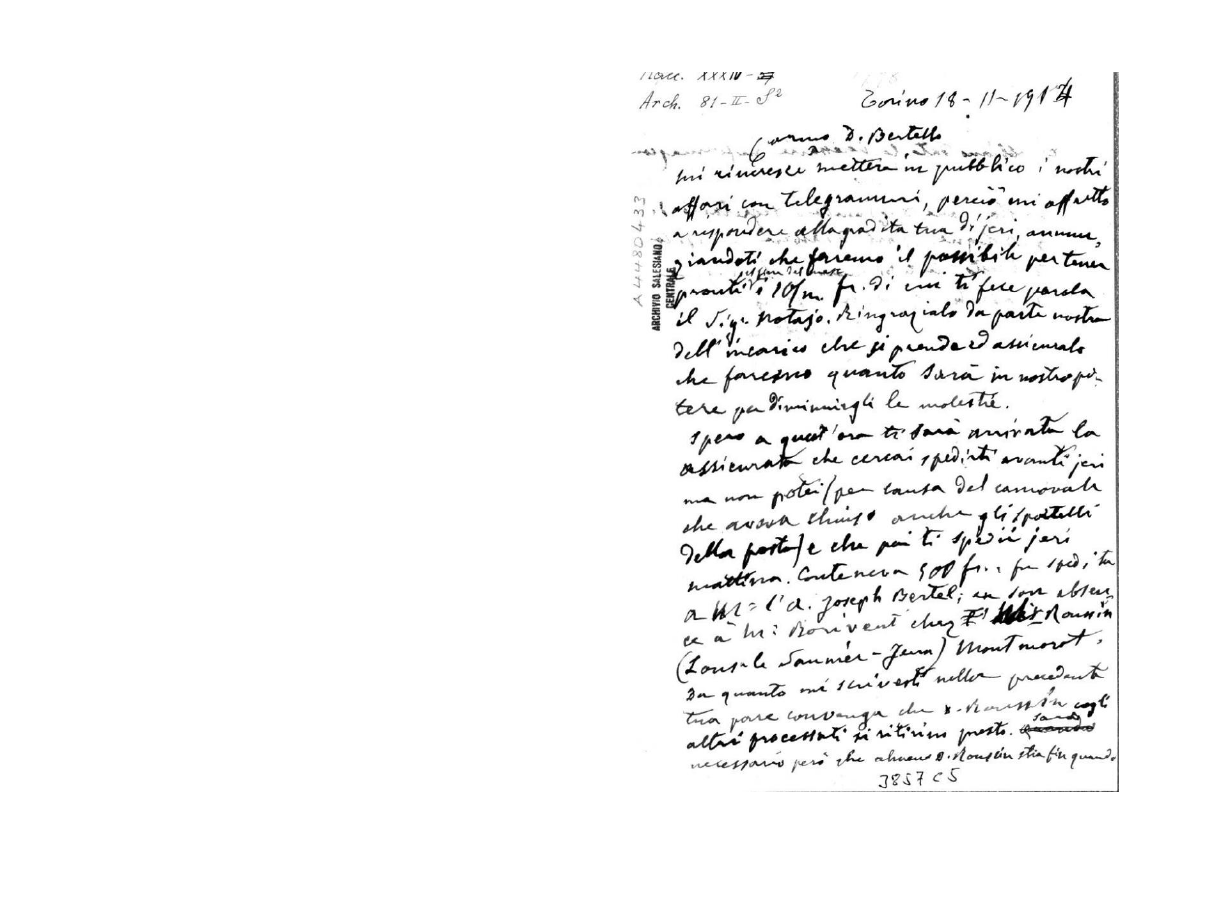 Racc. XXXIV-
Arch. 81-II-S²
Torino 18-11-191
Carmo D. Bertello
mi rincresce mettere in pubblico i nostri
affari con telegrammi, perciò mi affretto
a rispondere alla gradita tua di jeri, annun,
ziandoti che faremo il possibile per tener
pel fine del mese
pronti i 10/m. fr. di cui ti fece parola
il Sigr. Notajo. Ringrazialo da parte nostra
dell'incarico che si prende ed assicuralo
che faremo quanto sarà in nostro po-
tere per diminuirgli le molestie.
Spero a quest'ora ti sarà arrivata la
assicurata che cercai spedirti avanti jeri
ma non potei (per causa del carnovale
che aveva chiuso anche gli sportelli
della posta) e che poi ti spedii jeri
mattina. Conteneva 500 fr.: fu spedita
a M= l'a. Joseph Bertel; en son absen,
ce à M: Borivent chez Roussin
(Lons-le Saunier-Jura) Montmorot.
Da quanto mi scrivesti nella precedente
tua pare convenga che D. Roussin cogli
altri processati si ritirino presto. Sarà
necessario però che almeno D. Roussin stia fin quando
3857 C5
A4480433
ARCHIVIO SALESIANO
CENTRALE